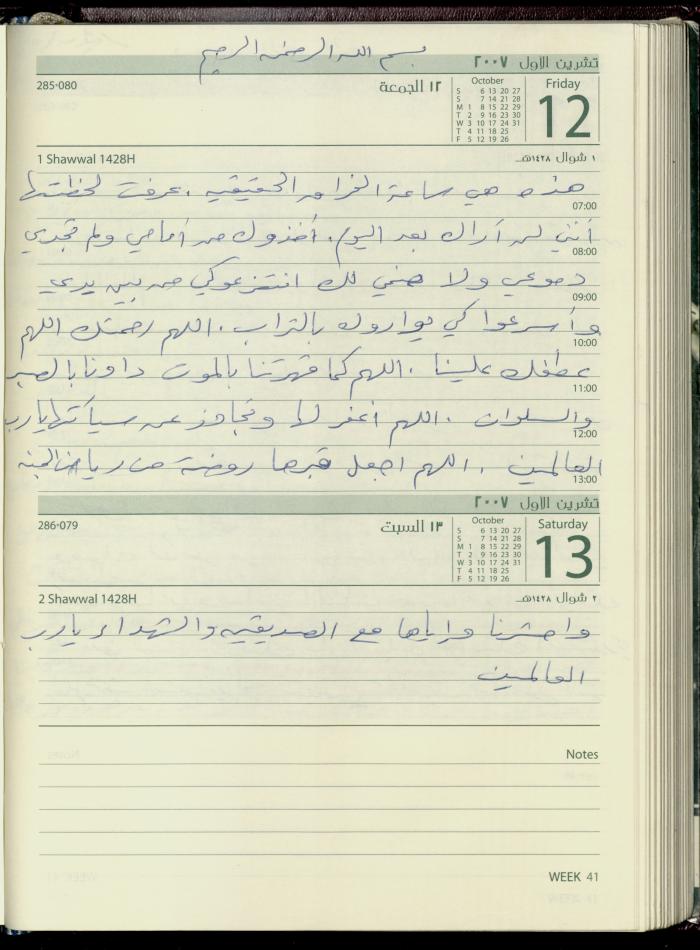 بسم الله الرحمن الرحيم
تشرين الاول ٢٠٠٧
285-080
١٢ الجمعة
October
S 6 13 20 27
S 7 14 21 28
M 1 8 15 22 29
T 2 9 16 23 30
W 3 10 17 24 31
T 4 11 18 25
F 5 12 19 26
Friday
12
1 Shawwal 1428H
١ شوال ١٤٢٨هـ
هذه هي ساعة الفراق الحقيقيه . عرفت لحظتها
07:00
أنني لن أراك بعد اليوم . أخذوك من أمامي ولم تجدي
08:00
دموعي ولا حبي لك انتزعوكي من بين يدي
09:00
وأسرعوا كي يواروك بالتراب . اللهم رحمتك اللهم
10:00
عطفك علينا . اللهم كما قهرتنا بالموت داونا بالصبر
11:00
والسلوان . اللهم اغفر لها وتجاوز عن سياتها يارب
12:00
العالمين . اللهم اجعل قبرها روضة من رياض الجنه
13:00
تشرين الاول ٢٠٠٧
286-079
١٣ السبت
October
S 6 13 20 27
S 7 14 21 28
M 1 8 15 22 29
T 2 9 16 23 30
W 3 10 17 24 31
T 4 11 18 25
F 5 12 19 26
Saturday
13
2 Shawwal 1428H
٢ شوال ١٤٢٨هـ
واحشرنا واياها مع الصديقين والشهداء يارب
العالمين
Notes
WEEK 41